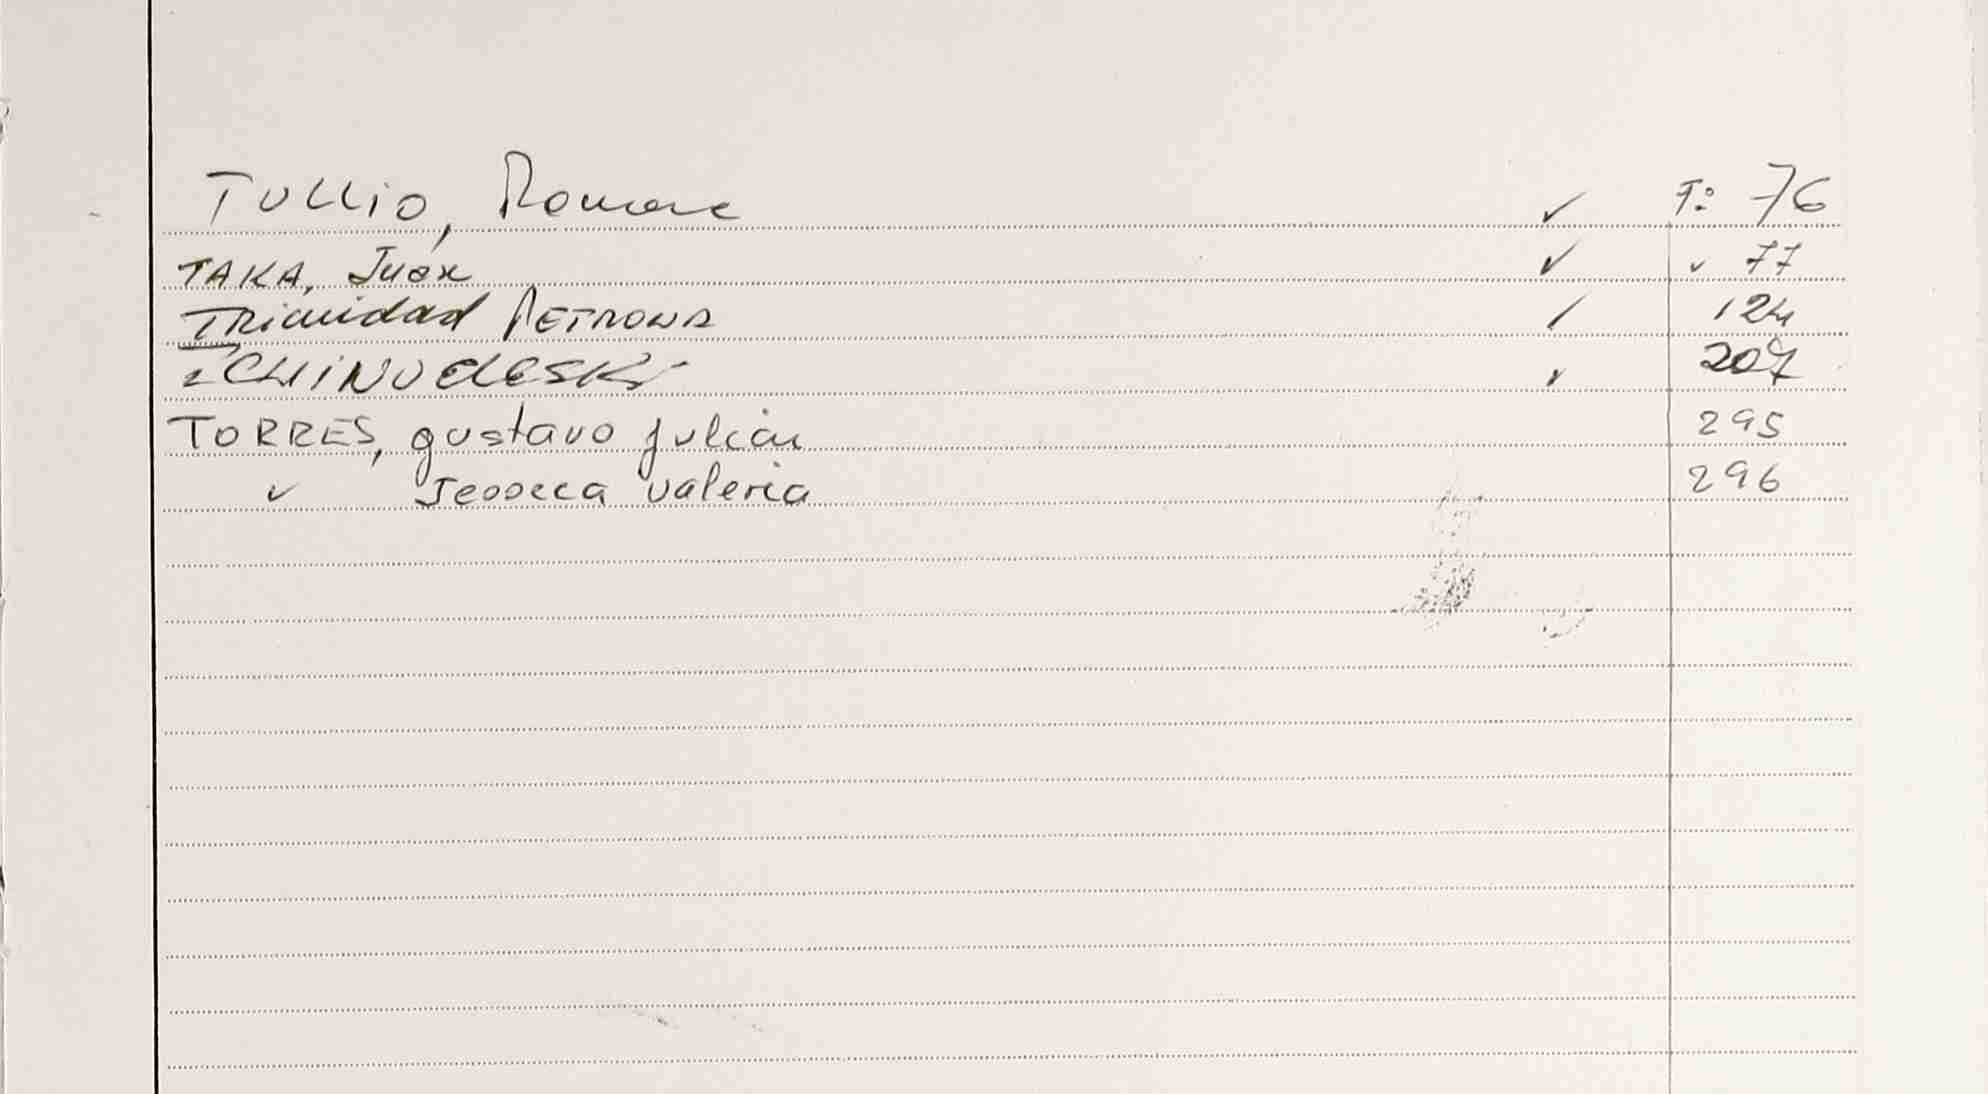 TULLIO, Romane ✓ F: 76
TAKA, Juan ✓ ✓ 77
Trinidad PETRONA / 124
TCHINODESKY ✓ 207
TORRES, gustavo julian 295
✓ Jessica valeria 296